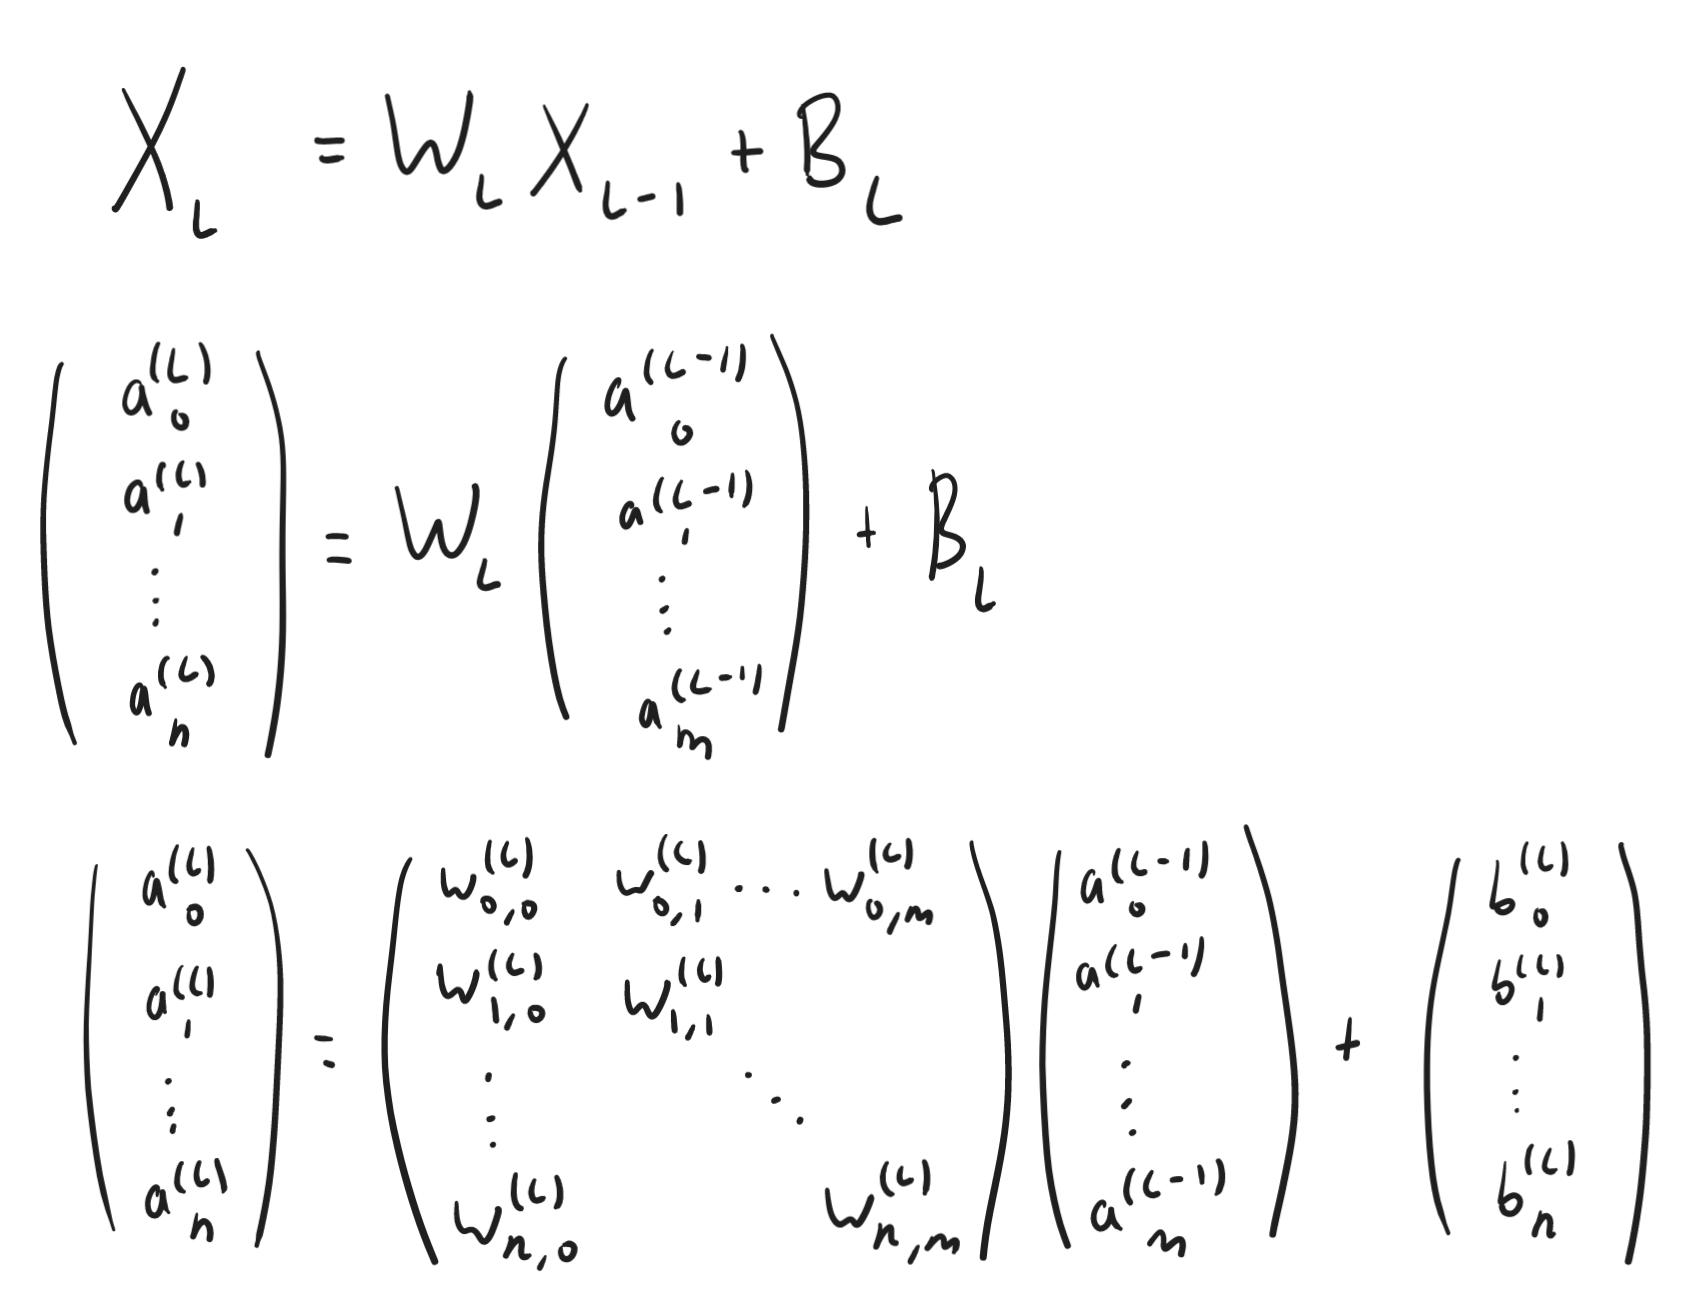 X_L = W_L X_{L-1} + B_L
\begin{pmatrix} a_0^{(L)} \\ a_1^{(L)} \\ \vdots \\ a_n^{(L)} \end{pmatrix} = W_L \begin{pmatrix} a_0^{(L-1)} \\ a_1^{(L-1)} \\ \vdots \\ a_m^{(L-1)} \end{pmatrix} + B_L
\begin{pmatrix} a_0^{(L)} \\ a_1^{(L)} \\ \vdots \\ a_n^{(L)} \end{pmatrix} = \begin{pmatrix} w_{0,0}^{(L)} & w_{0,1}^{(L)} & \cdots & w_{0,m}^{(L)} \\ w_{1,0}^{(L)} & w_{1,1}^{(L)} & & \\ \vdots & & \ddots & \\ w_{n,0}^{(L)} & & & w_{n,m}^{(L)} \end{pmatrix} \begin{pmatrix} a_0^{(L-1)} \\ a_1^{(L-1)} \\ \vdots \\ a_m^{(L-1)} \end{pmatrix} + \begin{pmatrix} b_0^{(L)} \\ b_1^{(L)} \\ \vdots \\ b_n^{(L)} \end{pmatrix}